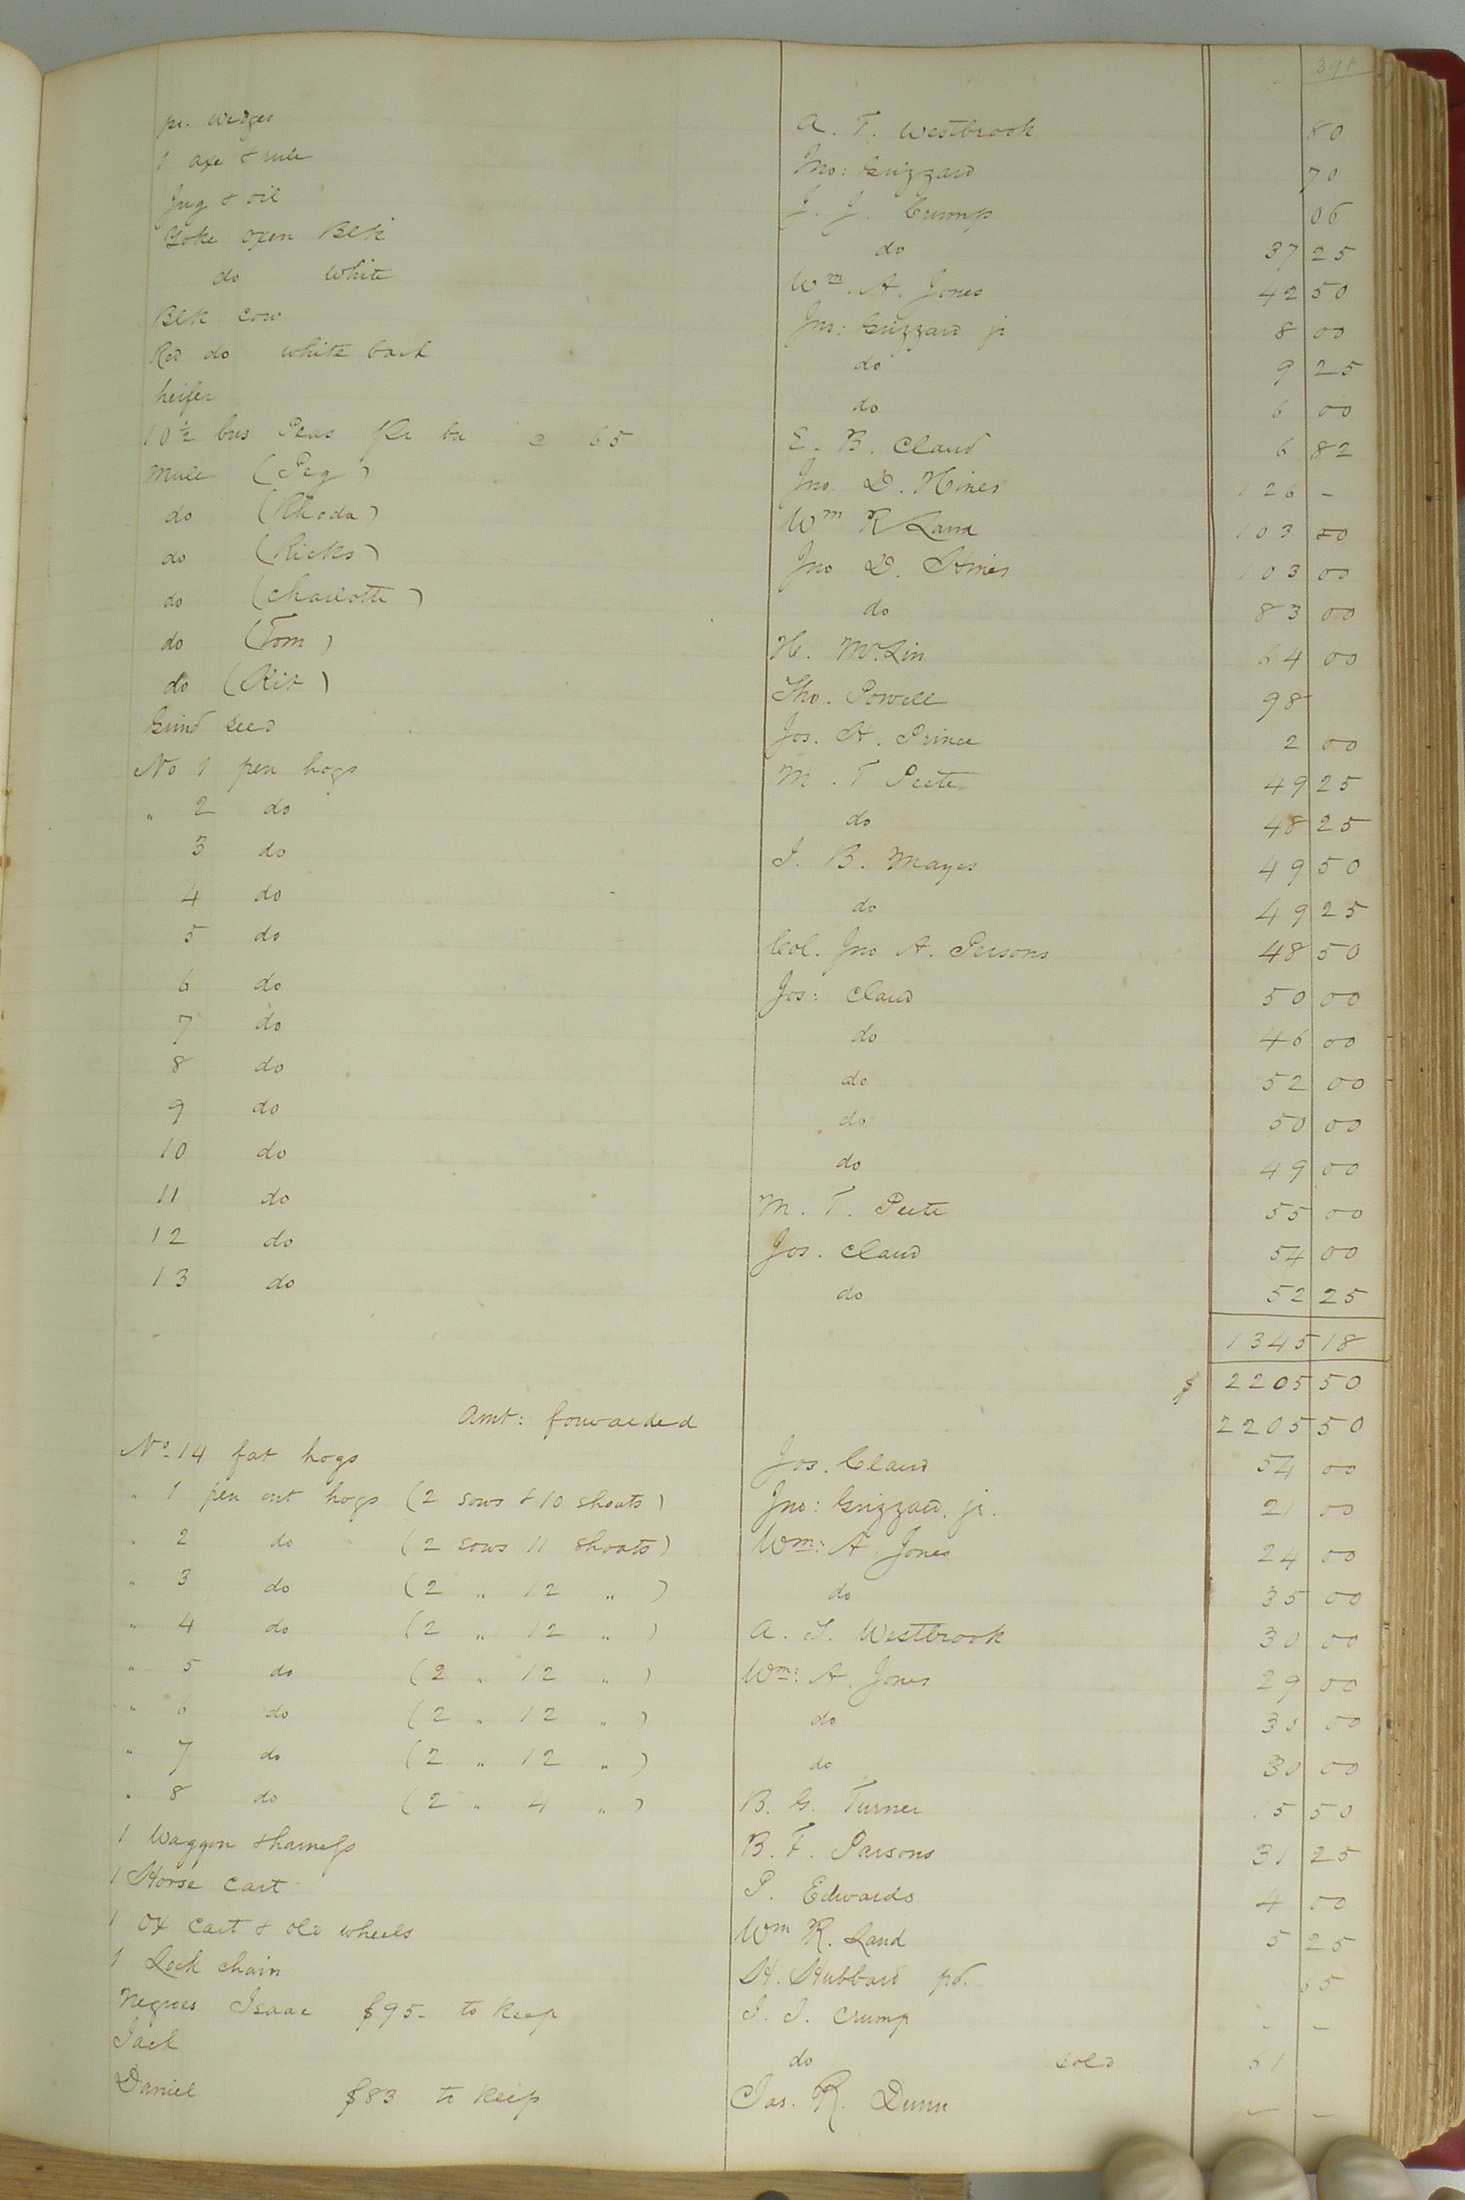 pr. Wedges A. T. Westbrook 80
1 axe & rule Jno: Grizzard 70
Jug & oil J. J. Crump 06
Yoke oxen Blk do 37 25
do White Wm. A. Jones 42 50
Blk cow Jno: Grizzard jr 8 00
Red do white back do 9 25
heifer do 6 00
10½ bus Peas pr bu @ 65 E. B. Claud 6 82
Mule (Peg) Jno. D. Hines 126 -
do (Rhoda) Wm R Land 103 50
do (Ricks) Jno D. Hines 103 00
do (Charlotte) do 83 00
do (Tom) H. McLin 64 00
do (Kit) Tho. Powell 98
Grind seed Jos. H. Prince 2 00
No 1 pen hogs M. T Peete 49 25
" 2 do do 48 25
3 do J. B. Mayes 49 50
4 do do 49 25
5 do Col. Jno A. Persons 48 50
6 do Jos: Claud 50 00
7 do do 46 00
8 do do 52 00
9 do do 50 00
10 do do 49 00
11 do M. T. Peete 55 00
12 do Jos. Claud 54 00
13 do do 52 25
1345 18
$ 2205 50
Amt: forwarded 2205 50
No 14 fat hogs Jos. Claud 54 00
" 1 pen out hogs (2 sows & 10 shoats) Jno: Grizzard. jr. 21 00
" 2 do (2 sows 11 shoats) Wm: A Jones 24 00
" 3 do (2 " 12 " ) do 35 00
" 4 do (2 " 12 " ) A. T. Westbrook 30 00
" 5 do (2 " 12 " ) Wm: A. Jones 29 00
" 6 do (2 " 12 " ) do 30 00
" 7 do (2 " 12 " ) do 30 00
" 8 do (2 " 4 " ) B. G. Turner 15 50
1 Waggon & harness B. F. Parsons 31 25
1 Horse cart P. Edwards 4 00
1 ox cart & old wheels Wm R. Land 5 25
1 Lock chain H. Hubbard pd. 65
Negroes Isaac $95- to keep J. J. Crump - -
Jack do sold 61
Daniel $83 to keep Jas. R. Dunn - -